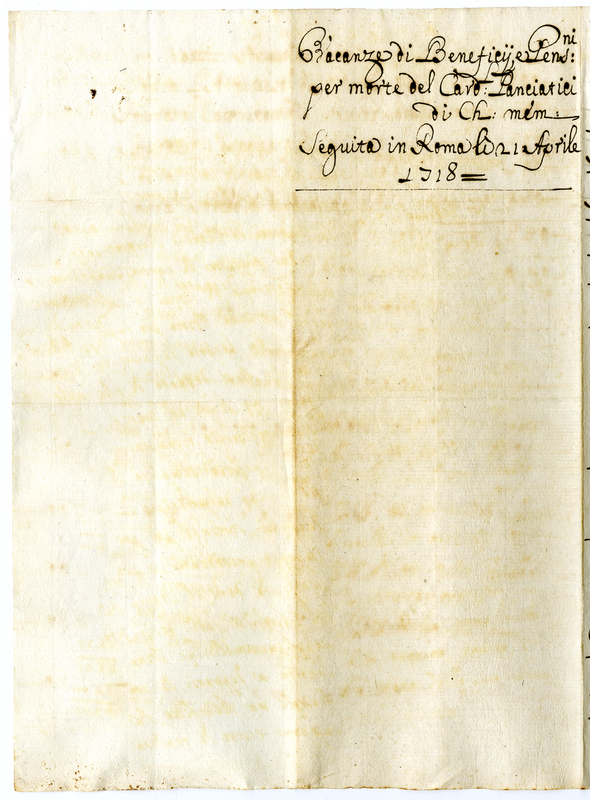 Vacanze di Beneficij, e Pens:ni
per morte del Card: Panciatici
di Ch: mem:
Seguita in Roma li 21 Aprile
1718=